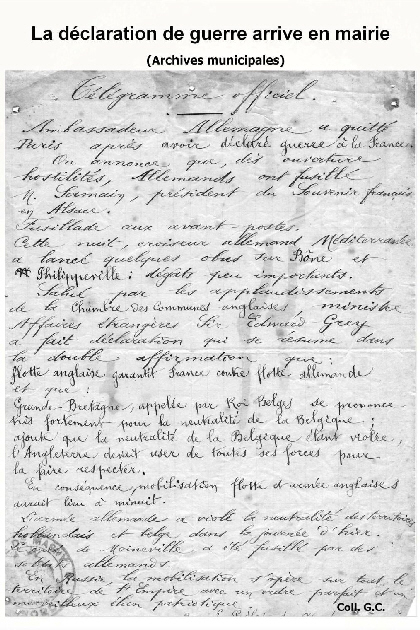 La déclaration de guerre arrive en mairie
(Archives municipales)
Télégramme officiel.
Ambassadeur Allemagne a quitté
Paris après avoir déclaré guerre à la France
On annonce que, dès ouverture
hostilités, Allemands ont fusillé
M. Samain, président du Souvenir français
en Alsace.
Fusillade aux avant-postes.
Cette nuit, croiseur allemand Méditerranée
a lancé quelques obus sur Bône et
Philippeville : dégâts peu importants.
Salué par les applaudissements
de la Chambre des Communes anglaises, ministre
Affaires étrangères Sir Edward Grey
a fait déclaration qui se résume dans
la double affirmation que :
flotte anglaise garantit France contre flotte allemande
et que :
Grande-Bretagne, appelée par Roi Belges se prononce
très fortement pour la neutralité de la Belgique ;
ajoute que la neutralité de la Belgique étant violée,
l'Angleterre devait user de toutes ses forces pour
la faire respecter.
En conséquence, mobilisation flotte et armée anglaises
aurait lieu à minuit.
L'armée allemande a violé la neutralité des territoires
hollandais et belge dans la journée d'hier.
de Moineville a été fusillé par des
soldats allemands.
En Russie la mobilisation s'opère sur tout le
territoire de l'Empire avec un ordre parfait et un
merveilleux élan patriotique
Coll. G.C.